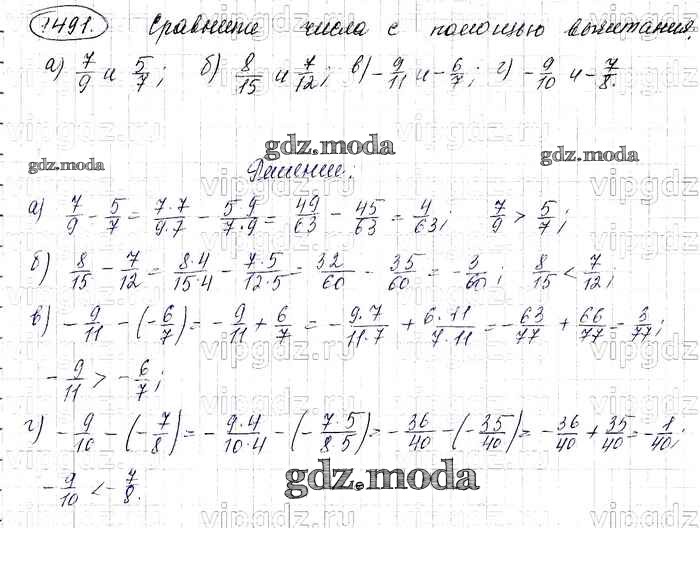 1491. Сравните числа с помощью вычитания.
а) 7/9 и 5/7; б) 8/15 и 7/12; в) -9/11 и -6/7; г) -9/10 и -7/8.
gdz.moda
gdz.moda
gdz.moda
Решение:
а) 7/9 - 5/7 = 7·7/9·7 - 5·9/7·9 = 49/63 - 45/63 = 4/63; 7/9 > 5/7;
б) 8/15 - 7/12 = 8·4/15·4 - 7·5/12·5 = 32/60 - 35/60 = -3/60; 8/15 < 7/12;
в) -9/11 - (-6/7) = -9/11 + 6/7 = -9·7/11·7 + 6·11/7·11 = -63/77 + 66/77 = 3/77;
-9/11 > -6/7;
г) -9/10 - (-7/8) = -9·4/10·4 - (-7·5/8·5) = -36/40 - (-35/40) = -36/40 + 35/40 = -1/40;
gdz.moda
-9/10 < -7/8.